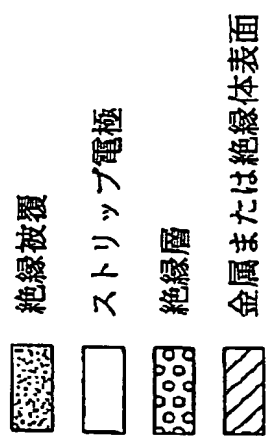 絶縁被覆
ストリップ電極
絶縁層
金属または絶縁体表面